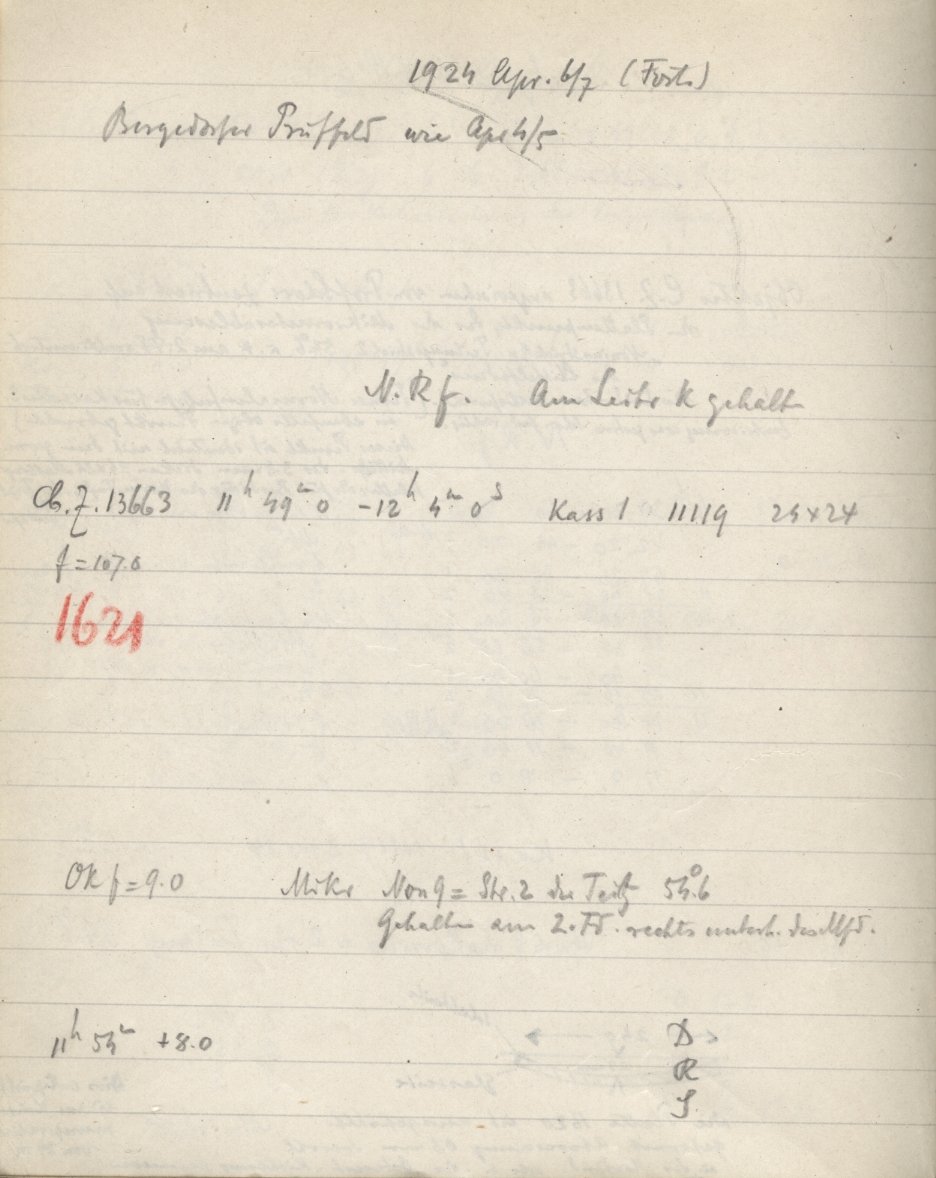 1924 Apr. 6/7 (Forts.)
Bergedorfer Prüffeld wie Apr 4/5
N. R f. Am Leitr R gehalten
Ob. Z. 13663 11h 49m 0 -12h 4m 0s Kass 1 11119 24x24
f = 107.0
1621
Ok f = 9.0 Mikr Non 9 = Str. 2 der Teilg 54°.6
Gehalten am 2. Fd. rechts unterh. des Mfd.
11h 54m +8.0 D
R
S